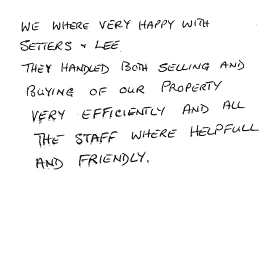 WE WHERE VERY HAPPY WITH
SETTERS & LEE.
THEY HANDLED BOTH SELLING AND
BUYING OF OUR PROPERTY
VERY EFFICIENTLY AND ALL
THE STAFF WHERE HELPFULL
AND FRIENDLY.